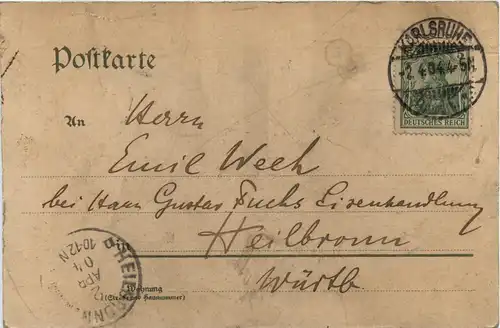 Postkarte
KARLSRUHE
-2.4.04.4-5N.
DEUTSCHES REICH
An Herrn
Emil Weeh
bei Herrn Gustav Fuchs Eisenhandlung
in
Heilbronn
Württb
Wohnung
(Straße und Hausnummer)
HEILBRONN
2 APR 04
10-12N